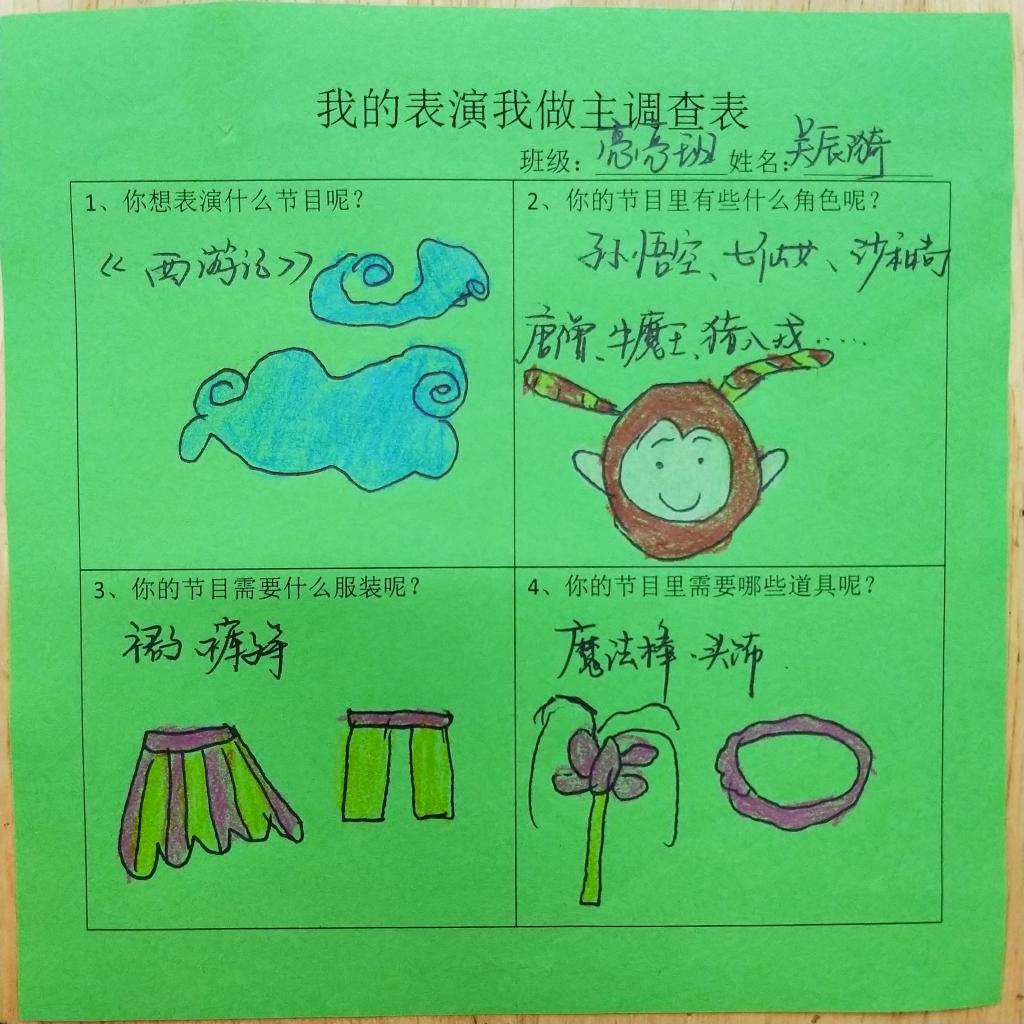 我的表演我做主调查表
班级：亮亮班 姓名：吴辰漪
1、你想表演什么节目呢？
《西游记》
2、你的节目里有些什么角色呢？
孙悟空、七仙女、沙和尚
唐僧、牛魔王、猪八戒……
3、你的节目需要什么服装呢？
裙子 裤子
4、你的节目里需要哪些道具呢？
魔法棒、头饰